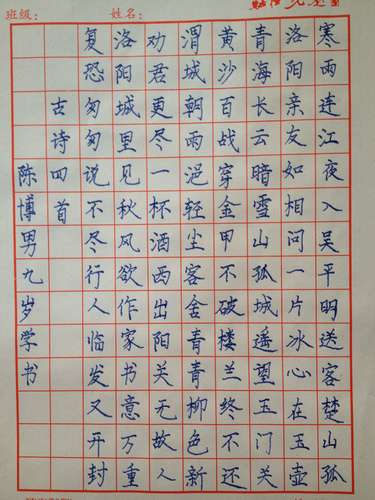 班级：
姓名：
寒雨连江夜入吴平明送客楚山孤
洛阳亲友如相问一片冰心在玉壶
青海长云暗雪山孤城遥望玉门关
黄沙百战穿金甲不破楼兰终不还
渭城朝雨浥轻尘客舍青青柳色新
劝君更尽一杯酒西出阳关无故人
洛阳城里见秋风欲作家书意万重
复恐匆匆说不尽行人临发又开封
古诗四首
陈博男九岁学书